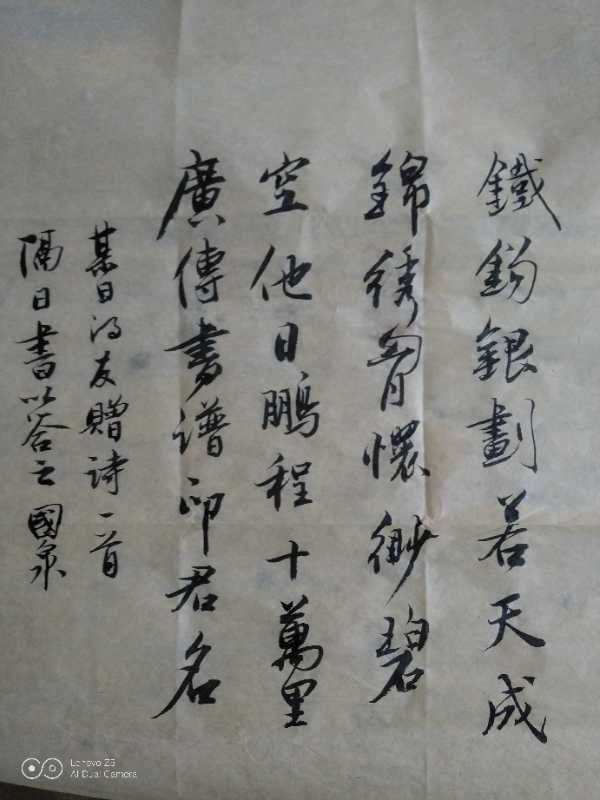 鐵鈎銀劃若天成
錦綉胷懷緲碧
空他日鵬程十萬里
廣傳書譜印君名
某日得友贈詩一首
隔日書以答之國泉
Lenovo Z5
AI Dual Camera